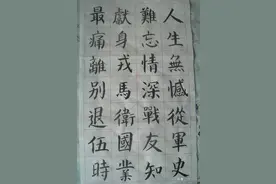 人生無憾從軍史
難忘情深戰友知
獻身戎馬衛國業
最痛離別退伍時